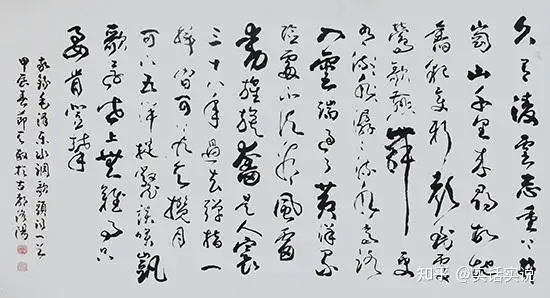 久有凌云志重上井
岗山千里来寻故地
旧貌变新颜到处
莺歌燕舞更
有潺潺流水高路
入云端过了黄洋界
险处不须看风雷
动旌旗奋是人寰
三十八年过去弹指一
挥间可上九天揽月
可下五洋捉鳖谈笑凯
歌还世上无难事只
要肯登攀
敬录毛泽东水调歌头词一首
甲辰春节于古都洛阳
知乎 @实话实说